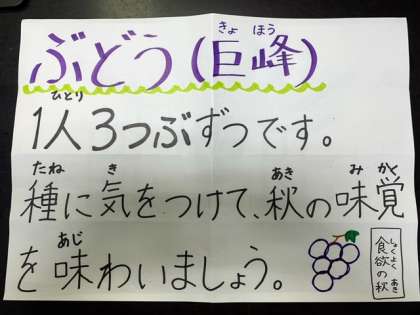 ぶどう(巨峰)
きょ ほう
1人3つぶずつです。
ひとり
種に気をつけて、秋の味覚
たね き あき み かく
を味わいましょう。
あじ
食欲の秋
しょくよく あき